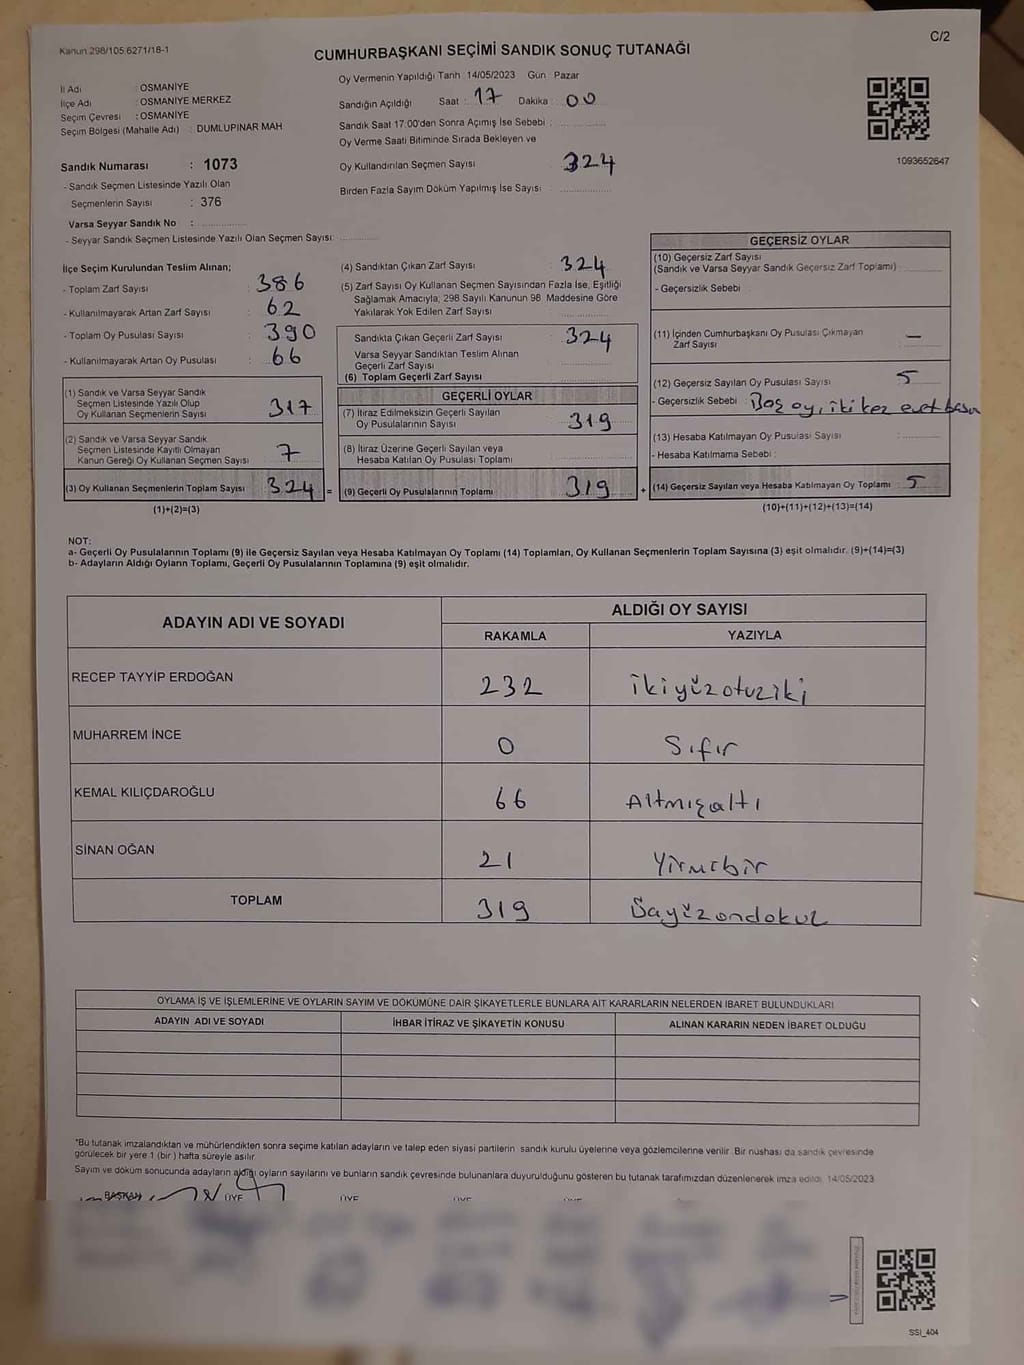 Kanun 298/105.6271/18-1
C/2
CUMHURBAŞKANI SEÇİMİ SANDIK SONUÇ TUTANAĞI
İl Adı : OSMANİYE
İlçe Adı : OSMANİYE MERKEZ
Seçim Çevresi : OSMANİYE
Seçim Bölgesi (Mahalle Adı) : DUMLUPINAR MAH
Sandık Numarası : 1073
- Sandık Seçmen Listesinde Yazılı Olan
Seçmenlerin Sayısı : 376
Varsa Seyyar Sandık No :
- Seyyar Sandık Seçmen Listesinde Yazılı Olan Seçmen Sayısı:
Oy Vermenin Yapıldığı Tarih :14/05/2023 Gün : Pazar
Sandığın Açıldığı Saat : 17 Dakika : 00
Sandık Saat 17:00'den Sonra Açımış İse Sebebi :
Oy Verme Saati Bitiminde Sırada Bekleyen ve
Oy Kullandırılan Seçmen Sayısı 324
Birden Fazla Sayım Döküm Yapılmış İse Sayısı :
1093652647
İlçe Seçim Kurulundan Teslim Alınan;
- Toplam Zarf Sayısı : 386
- Kullanılmayarak Artan Zarf Sayısı : 62
- Toplam Oy Pusulası Sayısı : 390
- Kullanılmayarak Artan Oy Pusulası : 66
(1) Sandık ve Varsa Seyyar Sandık
Seçmen Listesinde Yazılı Olup
Oy Kullanan Seçmenlerin Sayısı 317
(2) Sandık ve Varsa Seyyar Sandık
Seçmen Listesinde Kayıtlı Olmayan
Kanun Gereği Oy Kullanan Seçmen Sayısı 7
(3) Oy Kullanan Seçmenlerin Toplam Sayısı 324 =
(1)+(2)=(3)
(4) Sandıktan Çıkan Zarf Sayısı : 324
(5) Zarf Sayısı Oy Kullanan Seçmen Sayısından Fazla İse, Eşitliği
Sağlamak Amacıyla; 298 Sayılı Kanunun 98. Maddesine Göre
Yakılarak Yok Edilen Zarf Sayısı :
Sandıkta Çıkan Geçerli Zarf Sayısı : 324
Varsa Seyyar Sandıktan Teslim Alınan
Geçerli Zarf Sayısı :
(6) Toplam Geçerli Zarf Sayısı
GEÇERLİ OYLAR
(7) İtiraz Edilmeksizin Geçerli Sayılan
Oy Pusulalarının Sayısı : 319
(8) İtiraz Üzerine Geçerli Sayılan veya
Hesaba Katılan Oy Pusulası Toplamı
(9) Geçerli Oy Pusulalarının Toplamı 319 +
GEÇERSİZ OYLAR
(10) Geçersiz Zarf Sayısı
(Sandık ve Varsa Seyyar Sandık Geçersiz Zarf Toplamı) :
- Geçersizlik Sebebi :
(11) İçinden Cumhurbaşkanı Oy Pusulası Çıkmayan
Zarf Sayısı : —
(12) Geçersiz Sayılan Oy Pusulası Sayısı : 5
- Geçersizlik Sebebi : Boş oy, iki kez evet basın
(13) Hesaba Katılmayan Oy Pusulası Sayısı :
- Hesaba Katılmama Sebebi :
(14) Geçersiz Sayılan veya Hesaba Katılmayan Oy Toplamı : 5
(10)+(11)+(12)+(13)=(14)
NOT:
a- Geçerli Oy Pusulalarının Toplamı (9) ile Geçersiz Sayılan veya Hesaba Katılmayan Oy Toplamı (14) Toplamları, Oy Kullanan Seçmenlerin Toplam Sayısına (3) eşit olmalıdır. (9)+(14)=(3)
b- Adayların Aldığı Oyların Toplamı, Geçerli Oy Pusulalarının Toplamına (9) eşit olmalıdır.
ADAYIN ADI VE SOYADI ALDIĞI OY SAYISI
RAKAMLA YAZIYLA
RECEP TAYYİP ERDOĞAN 232 ikiyüzotuziki
MUHARREM İNCE 0 Sıfır
KEMAL KILIÇDAROĞLU 66 Altmışaltı
SİNAN OĞAN 21 Yirmibir
TOPLAM 319 Üçyüzondokuz
OYLAMA İŞ VE İŞLEMLERİNE VE OYLARIN SAYIM VE DÖKÜMÜNE DAİR ŞİKAYETLERLE BUNLARA AİT KARARLARIN NELERDEN İBARET BULUNDUKLARI
ADAYIN ADI VE SOYADI İHBAR İTİRAZ VE ŞİKAYETİN KONUSU ALINAN KARARIN NEDEN İBARET OLDUĞU
*Bu tutanak imzalandıktan ve mühürlendikten sonra seçime katılan adayların ve talep eden siyasi partilerin sandık kurulu üyelerine veya gözlemcilerine verilir. Bir nüshası da sandık çevresinde
görülecek bir yere 1 (bir) hafta süreyle asılır.
Sayım ve döküm sonucunda adayların aldığı oyların sayılarını ve bunların sandık çevresinde bulunanlara duyurulduğunu gösteren bu tutanak tarafımızdan düzenlenerek imza edildi. 14/05/2023
BAŞKAN ÜYE ÜYE ÜYE ÜYE
SSI_404